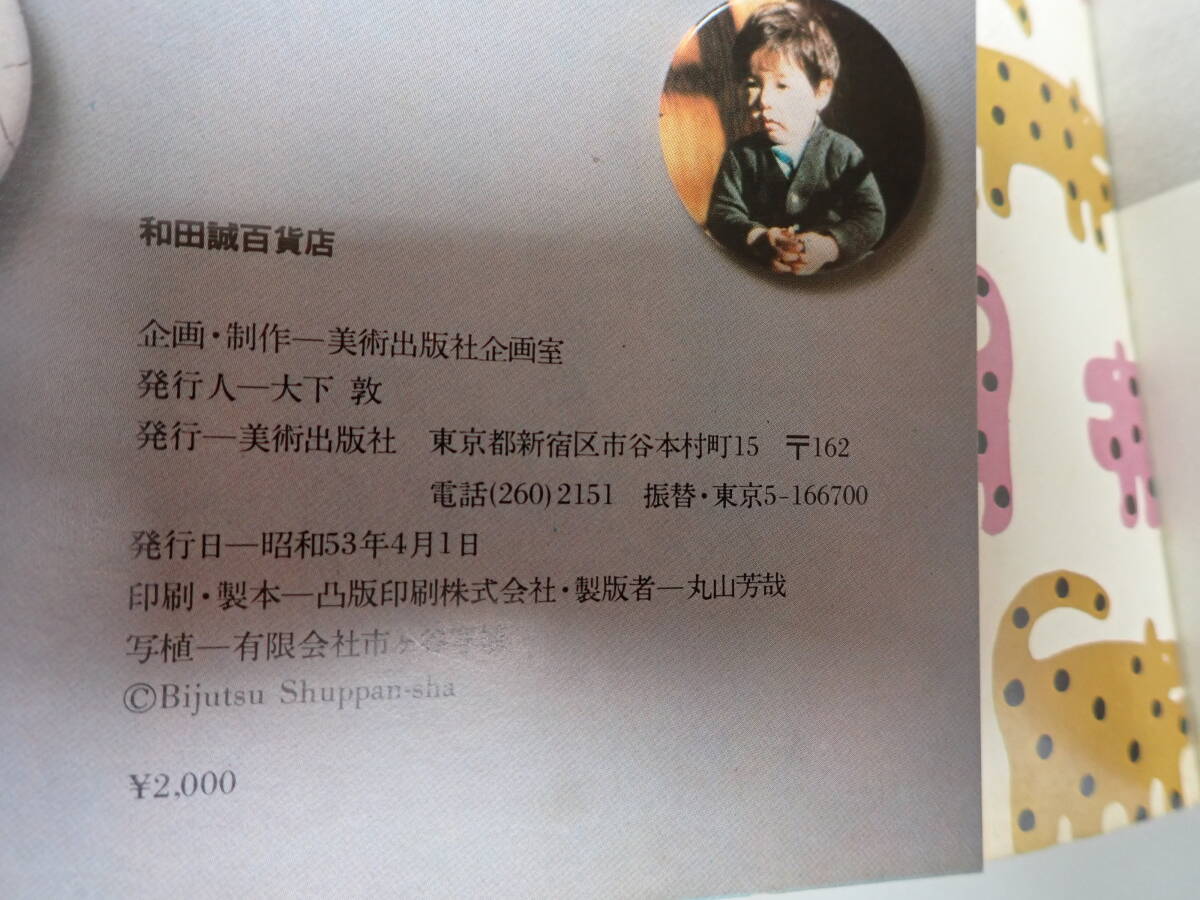 和田誠百貨店
企画・制作―美術出版社企画室
発行人―大下 敦
発行―美術出版社 東京都新宿区市谷本村町15 〒162
電話(260)2151 振替・東京5-166700
発行日―昭和53年4月1日
印刷・製本―凸版印刷株式会社・製版者―丸山芳哉
写植―有限会社市ヶ谷写植
©Bijutsu Shuppan-sha
¥2,000